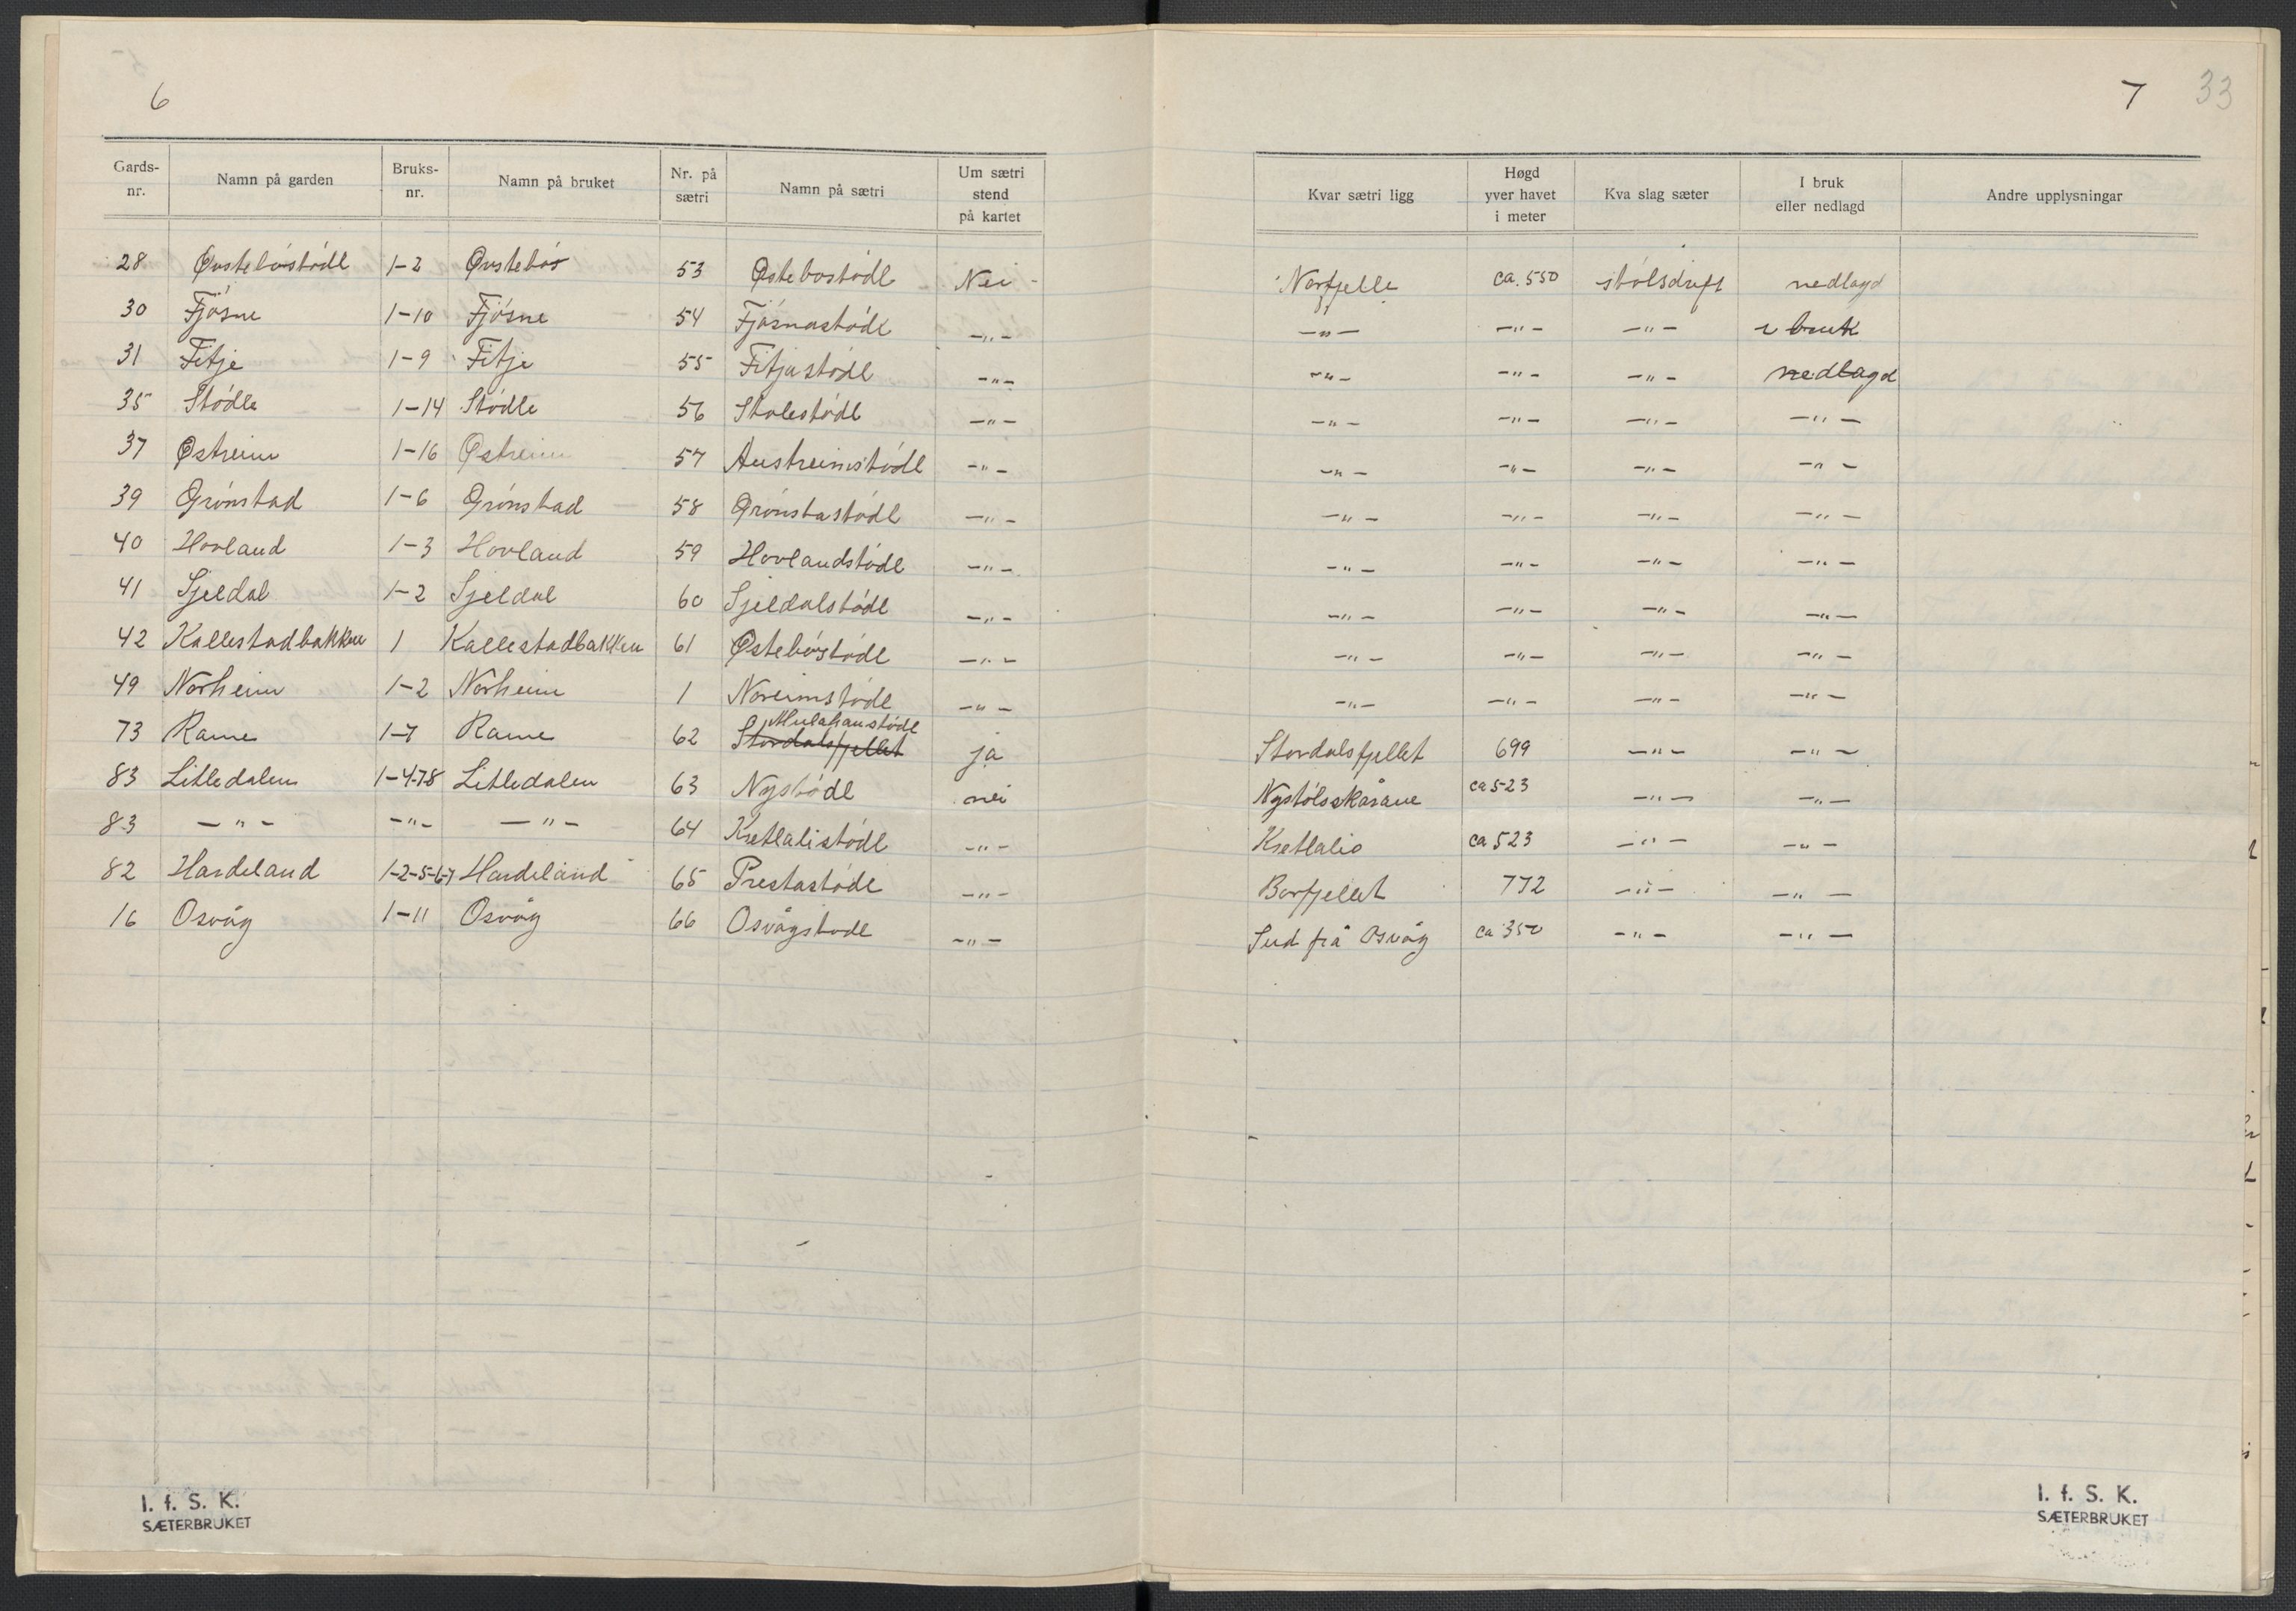 6
Gards-nr. Namn på garden Bruks-nr. Namn på bruket Nr. på sætri Namn på sætri Um sætri stend på kartet
28 Øvstebøstødl 1-2 Øvstebøs 53 Østebøstødl Nei
30 Fjøsne 1-10 Fjøsne 54 Fjøsnastødl -"-
31 Fitje 1-9 Fitje 55 Fitjastødl -"-
35 Stødle 1-14 Stødle 56 Stølestødl -"-
37 Østreim 1-16 Østreim 57 Austreimstødl -"-
39 Grønstad 1-6 Grønstad 58 Grønstastødl -"-
40 Hovland 1-3 Hovland 59 Hovlandstødl -"-
41 Sjeldal 1-2 Sjeldal 60 Sjeldalstødl -"-
42 Kallestadbakken 1 Kallestadbakken 61 Østebøstødl -"-
49 Norheim 1-2 Norheim 1 Noreimstødl -"-
73 Rame 1-7 Rame 62 Stordalsfjellet ja
83 Litledalen 1-4-7-8 Litledalen 63 Nystødl nei
83 -"- -"- -"- 64 Kretlalistødl -"-
82 Hardeland 1-2-5-6-7 Hardeland 65 Prestastødl -"-
16 Osvåg 1-11 Osvåg 66 Osvågstødl -"-
I. f. S. K.
SÆTERBRUKET
7 33
Kvar sætri ligg Høgd yver havet i meter Kva slag sæter I bruk eller nedlagd Andre upplysningar
Norfjelle ca. 550 stølsdrift nedlagd
-"- -"- -"- i bruk
-"- -"- -"- nedlagd
-"- -"- -"- -"-
-"- -"- -"- -"-
-"- -"- -"- -"-
-"- -"- -"- -"-
-"- -"- -"- -"-
-"- -"- -"- -"-
-"- -"- -"- -"-
Stordalsfjellet 699 -"- -"-
Nystølsskårane ca 523 -"- -"-
Kretlalio ca 523 -"- -"-
Borfjellet 772 -"- -"-
Sud frå Osvåg ca 350 -"- -"-
I. f. S. K.
SÆTERBRUKET